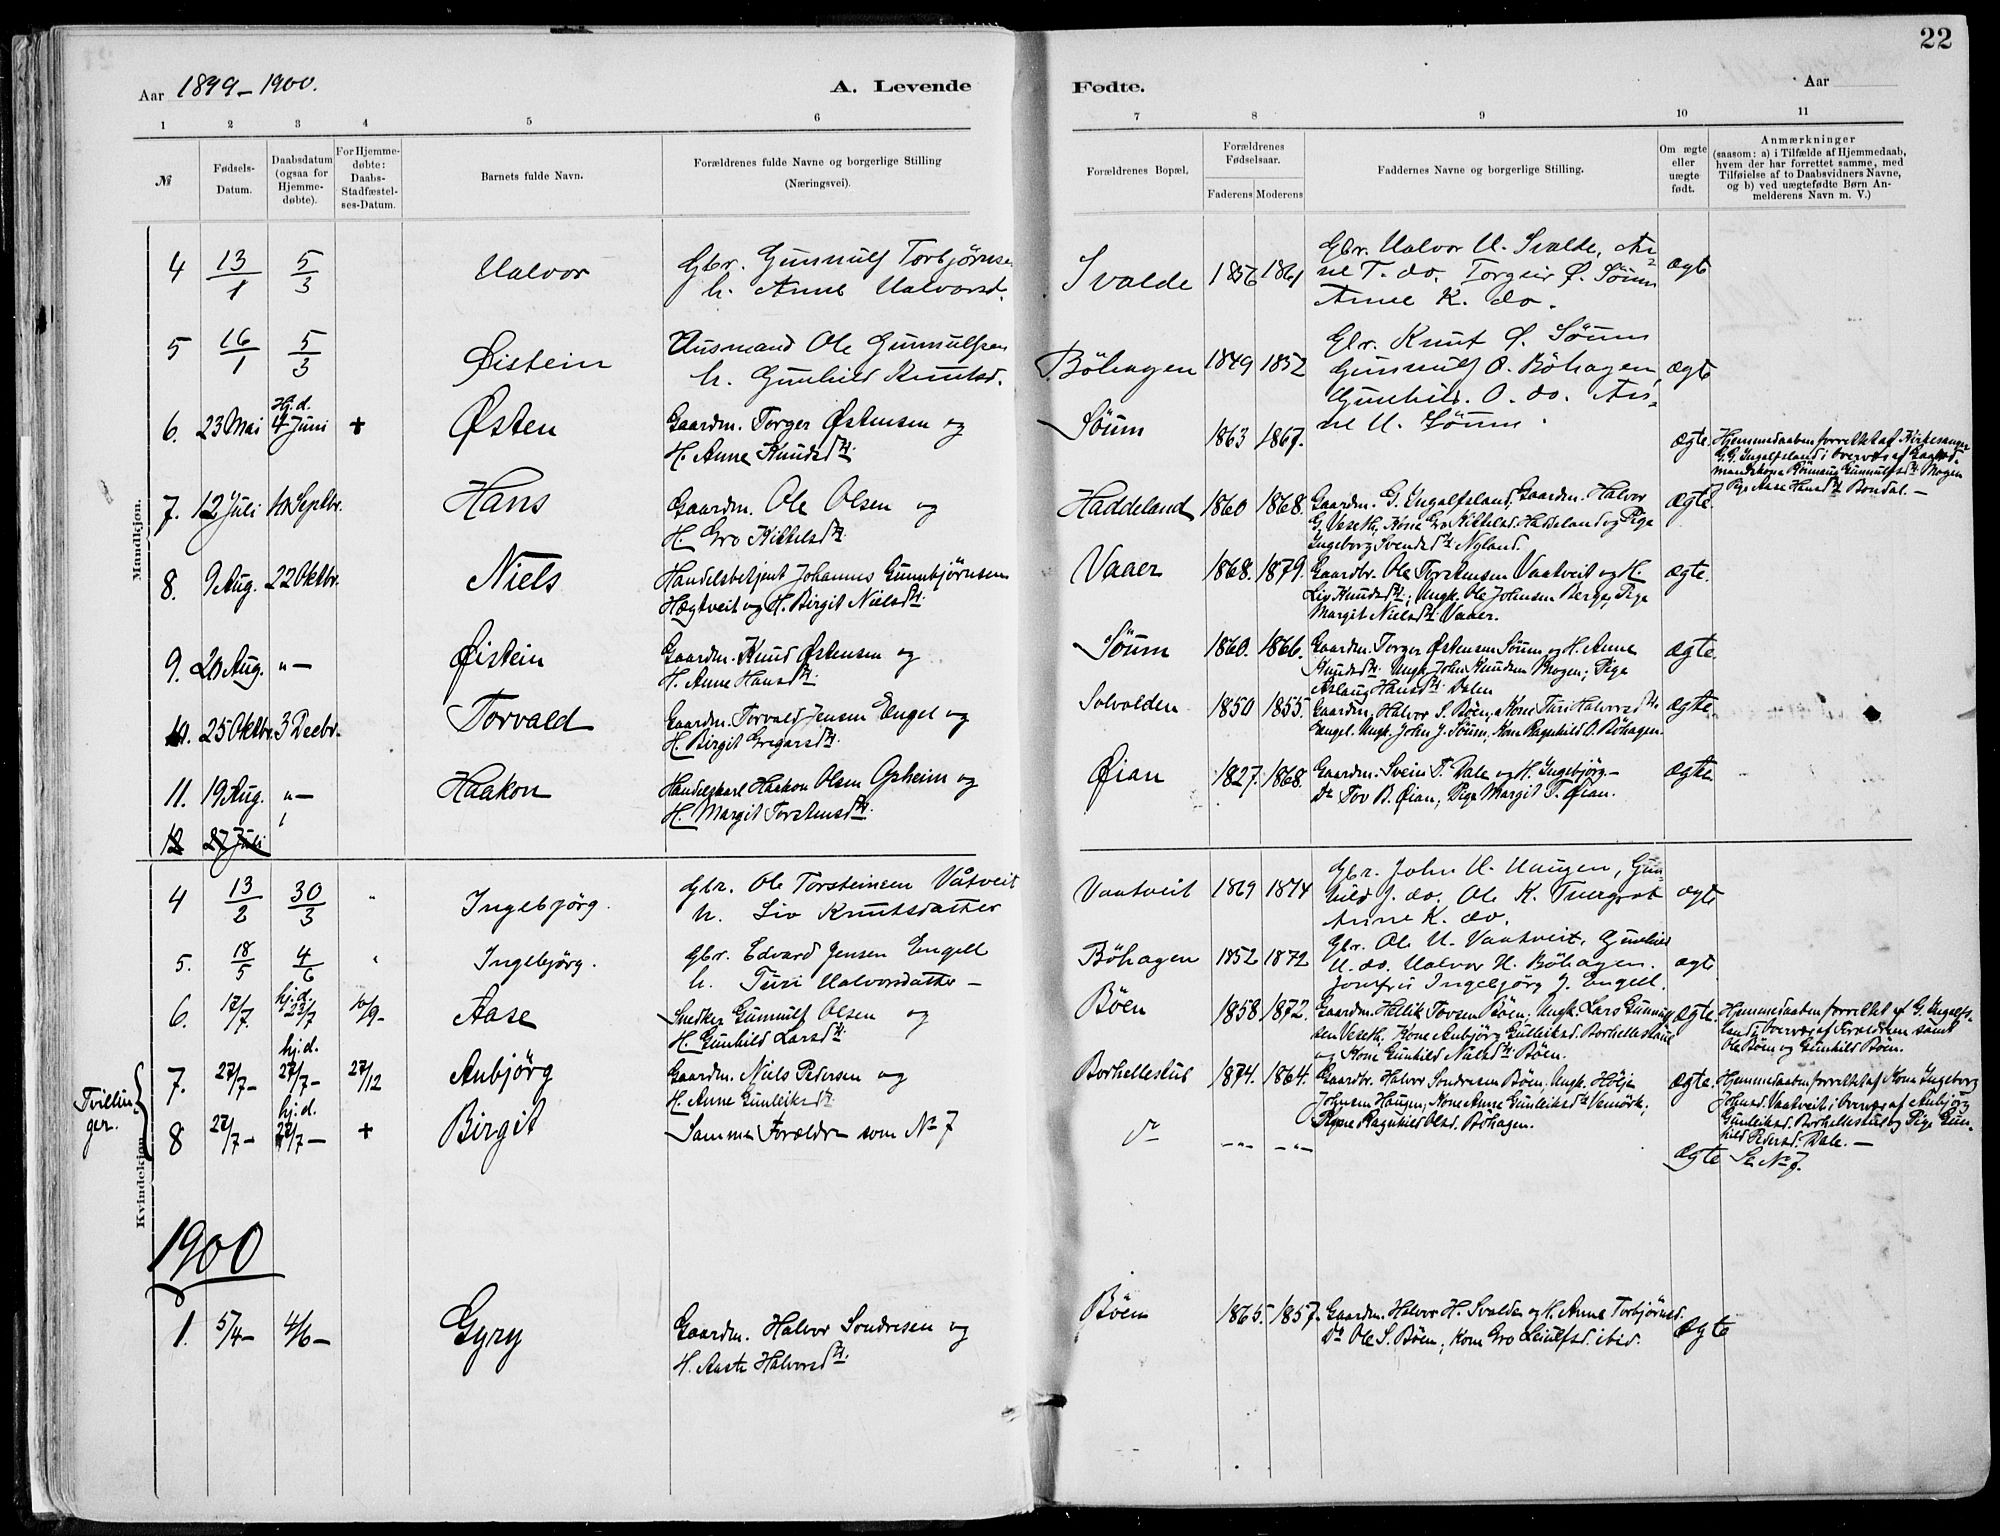 22
Aar 1899-1900.
A. Levende Fødte.
Aar
1 2 3 4 5 6 7 8 9 10 11
№
Fødsels-
Datum.
Daabsdatum
(ogsaa for
Hjemme-
døbte).
For Hjemme-
døbte:
Daabs-
Stadfæstel-
ses-Datum.
Barnets fulde Navn.
Forældrenes fulde Navne og borgerlige Stilling
(Næringsvei).
Forældrenes Bopæl.
Forældrenes
Fødselsaar.
Faderens Moderens
Faddernes Navne og borgerlige Stilling.
Om ægte
eller
uægte
født.
Anmærkninger
(saasom: a) i Tilfælde af Hjemmedaab,
hvem der har forrettet samme, med
Tilføielse af to Daabsvidners Navne,
og b) ved uægtefødte Børn An-
melderens Navn m. V.)
Mandkjøn.
4 13/1 5/3 Halvor
Gbr. Gunnulf Torbjørnsen
h. Anne Halvorsd.
Svalde 1856 1861
Gbr. Halvor H. Svalde, An-
ne T. do. Torgeir Ø. Søum
Anne K. do.
ægte
5 16/1 5/3 Øistein
Husmand Ole Gunnulfsen
h. Gunhild Knutsd.
Böhagen 1849 1852
Gbr. Knut Ø. Söum
Gunnulf O. Böhagen,
Gunhild O. do. An-
ne H. Söum.
ægte
6. 23 Mai Hj.d. 4 Juni + Østen
Gaardm. Torger Østensen og
H. Anne Knudsdtr.
Söum 1863 1867.
ægte.
Hjemmedaaben forrettet af Kirkesanger
G. G. Ingolfsland i Overvær af Gaard-
mandskone Rönnaug Gunnulfsdtr. Mogen
Pige Aase Hansdtr. Bondal. —
7. 12 Juli 10 Septbr. Hans
Gaardm. Ole Olsen og
H. Gro Kittelsdtr.
Haddeland 1860 1868.
Gaardm. G. Ingolfsland, Gaardm. Halvor
G. Veseth, Kone Gro Kittelsd. Haddeland og Pige
Ingeborg Svendsdtr. Nyland.
ægte.
8. 9 Aug. 22 Oktbr. Niels
Handelsbetjent Johannes Gunnbjørnsen
Hægtveit og H. Birgit Nielsdtr.
Vaaer 1868. 1879.
Gaardbr. Ole Torstensen Vaatveit og H.
Liv Knudsdtr.; Ungk. Ole Johnsen Berge, Pige
Margit Nielsdtr. Vaaer.
ægte.
9. 20 Aug. "— Øistein
Gaardm. Knud Østensen og
H. Anne Hansdtr.
Söum 1860. 1866.
Gaardm. Torger Østensen Söum og H. Anne
Knudsdtr. Ungk. John Knudsen Mogen; Pige
Aslaug Hansdtr. Dalen
ægte.
10. 25 Oktbr. 3 Decbr. Torvald
Gaardm. Torvald Jensen Engel og
H. Birgit Gregarsdtr.
Solvolden 1850 1855.
Gaardm. Halvor S. Böen, Kone Turi Halvorsdtr.
Engel. Ungk. John J. Söum, Kone Ragnhild O. Böhagen.
ægte.
11. 19 Aug. "— Haakon
Handelskarl Haakon Olsen Opheim og
H. Margit Torstensdtr.
Øian 1827. 1868.
Gaardm. Svein T. Dale og H. Ingebjörg.—
Do Tov B. Øian, Pige Margit T. Øian.
ægte
12 27 Juli
Kvindekjøn.
4 13/2 30/3 " Ingebjørg.
Gbr. Ole Torsteinsen Våtveit
h. Liv Knutsdatter
Vaatveit 1869 1874
Gbr. John H. Haugen, Gun-
hild J. do. Ole K.
Anne K. do.
ægte
5. 18/5 4/6 " Ingebjørg.
Gbr. Edvard Jensen Engell
h. Turi Halvorsdatter —
Böhagen 1852 1872
Gbr. Ole H. Vaatveit, Gunhild
H. do. Halvor H. Böhagen.
Jomfru Ingebjørg J. Engell.
ægte
6. 17/7. hj.d. 23/7 10/9— Aase
Snedker Gunnulf Olsen og
H. Gunhild Larsdtr.
Böen 1858 1872.
Gaardm. Hellik Tovsen Böen, Ungk. Lars Gunnulf-
sen Veseth, Kone Anbjörg Gunleiksd. Borhellestul
og Kone Gunhild Nielsdtr. Böen.
ægte.
Hjemmedaaben forrettet af G. Ingolfs-
land i Overvær af Forældrene samt
Ole Böen og Gunhild Böen.
Tvillin-
ger.
7. 27/7— hj.d. 27/7— 27/12 Anbjörg
Gaardm. Niels Pedersen og
H. Anne Gunleiksdtr.
Borhellestul 1874. 1864.
Gaardbr. Halvor Sondresen Böen, Ungk. Höljе
Johnsen Haugen, Kone Anne Gunleiksdtr. Vemörk,
Pigne Ragnhild Olsd. Böhagen.
ægte.
Hjemmedaaben forrettet af Kone Ingeborg
Johnsd. Vaatveit i Overvær af Anbjörg
Gunleiksd. Borhellestul og Pige Gun-
hild Pedersd. Dale. —
8 27/7— hj.d. 27/7— + Birgit
Samme Forældre som No 7
do —"— —"—
ægte Se No 7.
1900
1. 5/4— 4/6— Gyry
Gaardm. Halvor Sondresen og
H. Aaste Halvorsdtr.
Böen 1865. 1857.
Gaardm. Halvor H. Svalden og H. Anne Torbjörnsd.
Do Ole S. Böen, Kone Gro Leiulfsd. ibid.
ægte